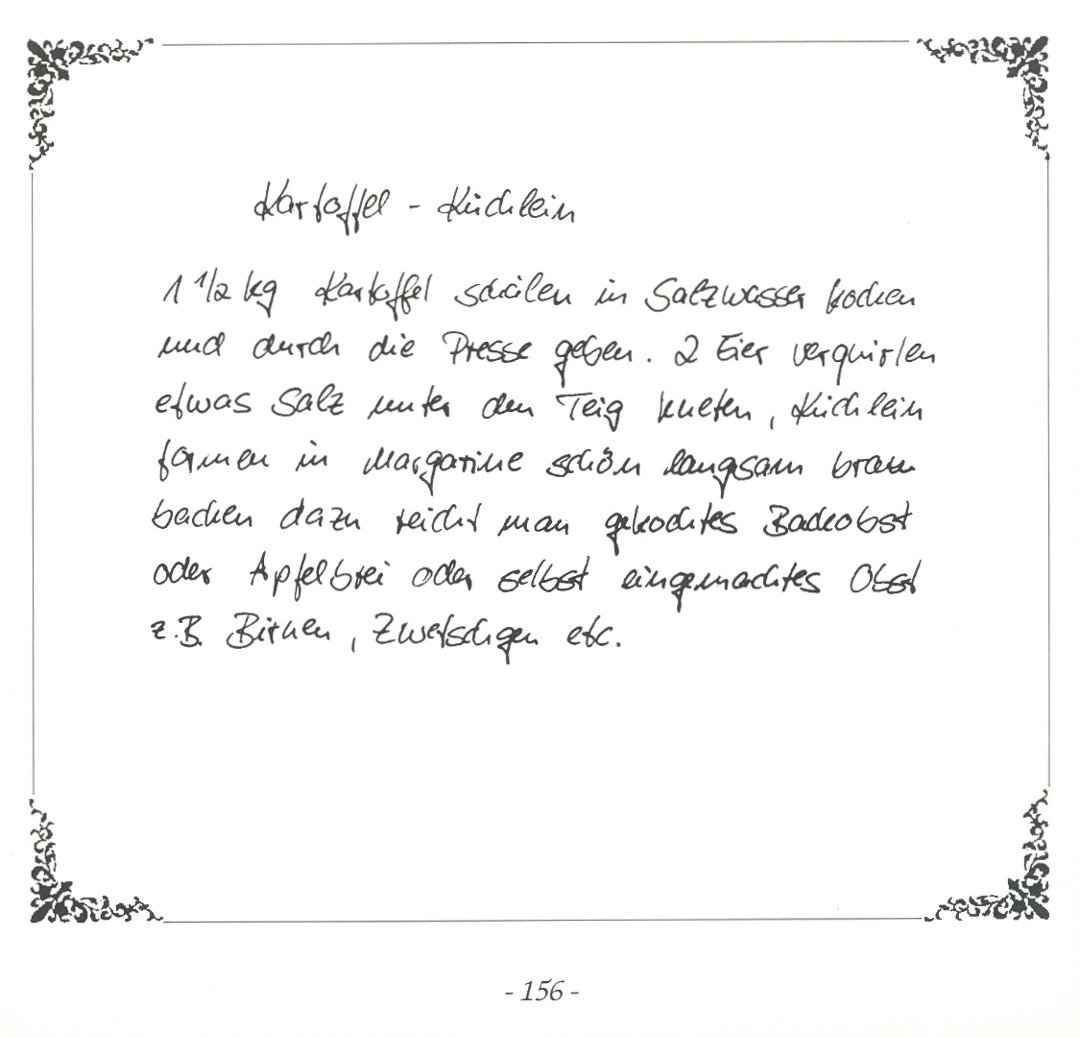 Kartoffel - Küchlein
1 1/2 kg Kartoffel schälen in Salzwasser kochen
und durch die Presse geben. 2 Eier verquirlen
etwas Salz unter den Teig kneten, Küchlein
formen in Margarine schön langsam braun
backen dazu reicht man gekochtes Backobst
oder Apfelbrei oder selbst eingemachtes Obst
z.B. Birnen, Zwetschgen etc.
- 156 -